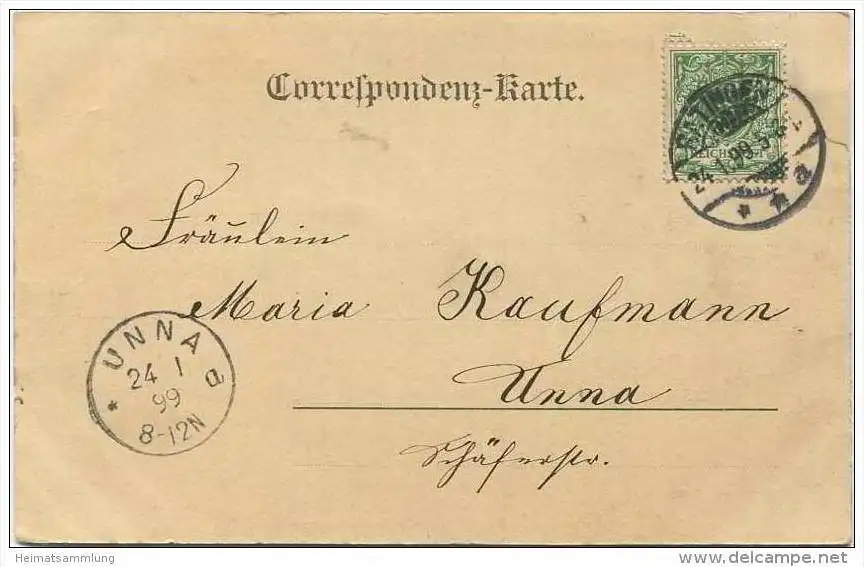 Correspondenz-Karte.
REICHSPOST
24.1.99.
a
Fräulein
Maria Kaufmann
Unna
Schäferstr.
UNNA
24 1
99
8-12N
* a
Heimatsammlung
www.delcampe.net